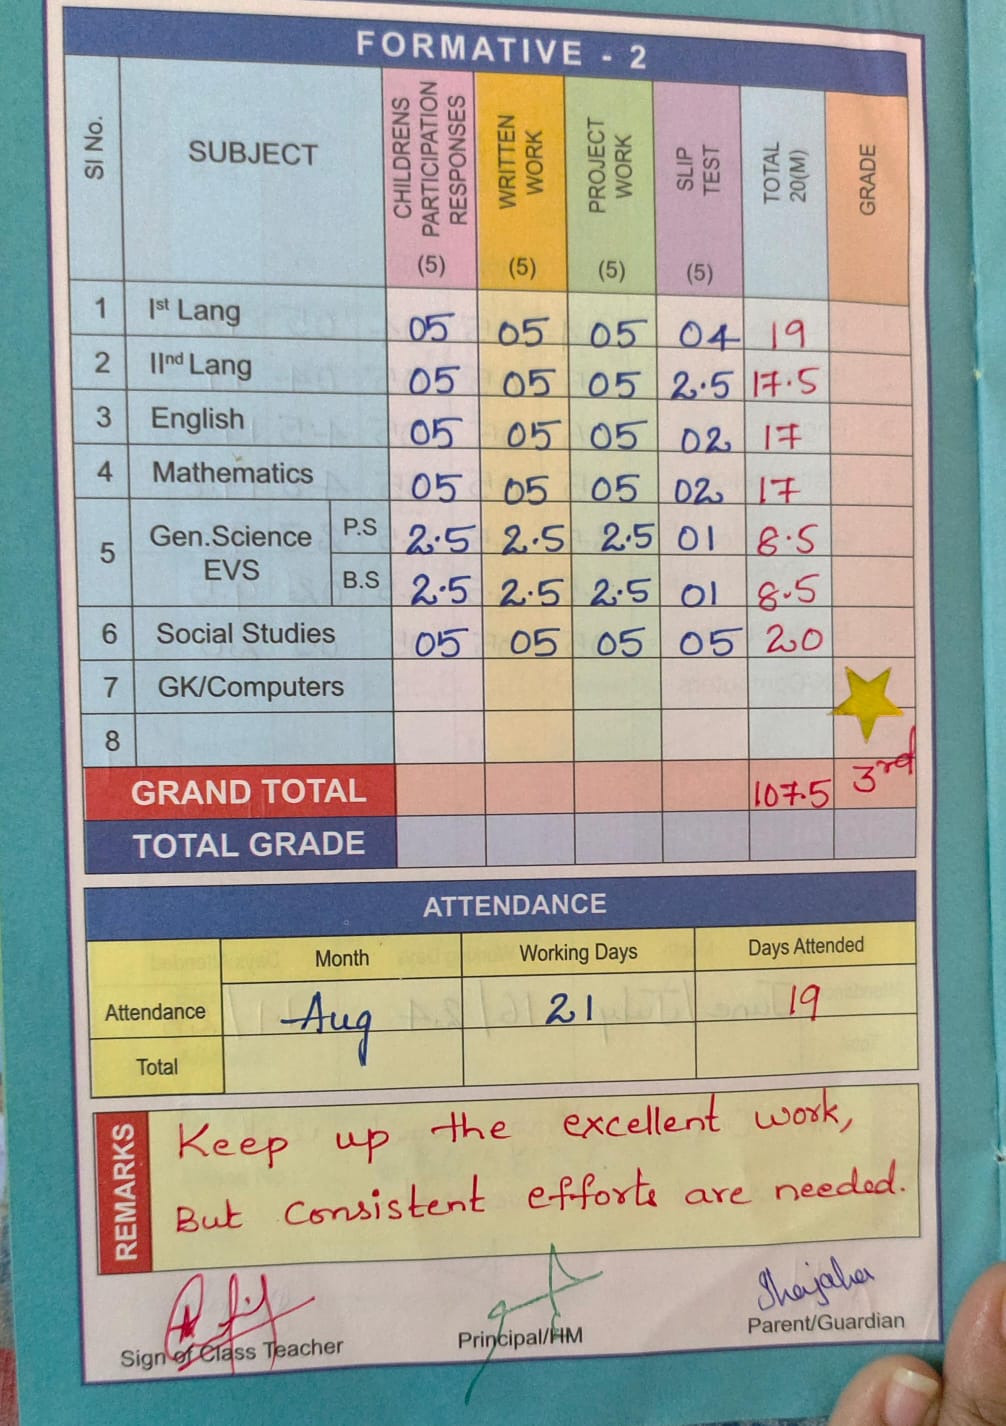 FORMATIVE - 2
SI No. SUBJECT CHILDRENS PARTICIPATION RESPONSES (5) WRITTEN WORK (5) PROJECT WORK (5) SLIP TEST (5) TOTAL 20(M) GRADE
1 Ist Lang 05 05 05 04 19
2 IInd Lang 05 05 05 2.5 17.5
3 English 05 05 05 02 17
4 Mathematics 05 05 05 02 17
5 Gen.Science EVS P.S 2.5 2.5 2.5 01 8.5
B.S 2.5 2.5 2.5 01 8.5
6 Social Studies 05 05 05 05 20
7 GK/Computers
8
GRAND TOTAL 107.5 3rd
TOTAL GRADE
ATTENDANCE
Month Working Days Days Attended
Attendance Aug 21 19
Total
REMARKS
Keep up the excellent work,
But consistent efforts are needed.
Sign of Class Teacher
Principal/HM
Parent/Guardian